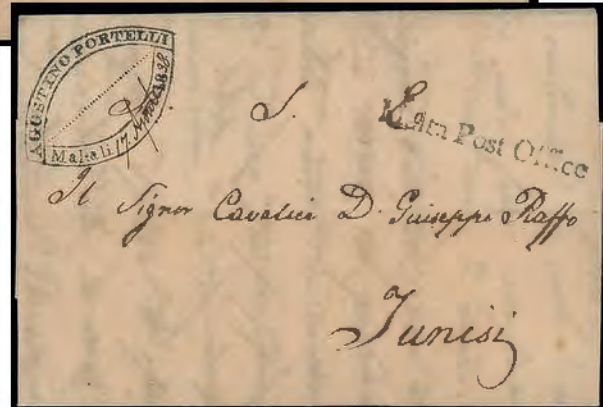 AGOSTINO PORTELLI
Malta li 17. Novbre 1838
S. E.
Malta Post Office
Il Signor Cavalier D. Giuseppe Raffo
Tunisi